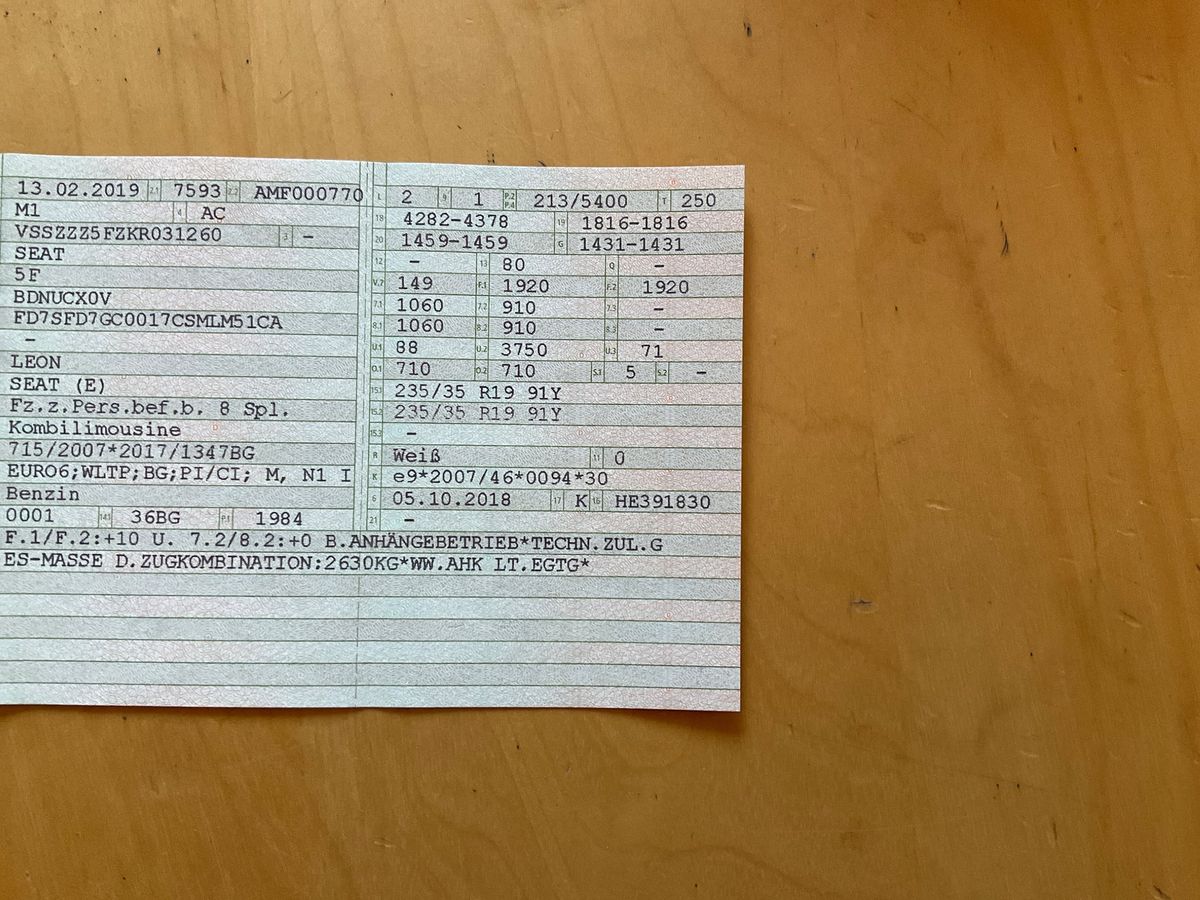 13.02.2019 2.1 7593 2.2 AMF000770
M1 4 AC
VSSZZZ5FZKR031260 3 –
SEAT
5F
BDNUCX0V
FD7SFD7GC0017CSMLM51CA
–
LEON
SEAT (E)
Fz.z.Pers.bef.b. 8 Spl.
Kombilimousine
715/2007*2017/1347BG
EURO6;WLTP;BG;PI/CI; M, N1 I
Benzin
0001 14.1 36BG P.1 1984
L 2 9 1 P.2 P.4 213/5400 T 250
18 4282-4378 19 1816-1816
20 1459-1459 G 1431-1431
12 – 13 80 Q –
V.7 149 F.1 1920 F.2 1920
7.1 1060 7.2 910 7.3 –
8.1 1060 8.2 910 8.3 –
U.1 88 U.2 3750 U.3 71
O.1 710 O.2 710 S.1 5 S.2 –
15.1 235/35 R19 91Y
15.2 235/35 R19 91Y
15.3 –
R Weiß 11 0
K e9*2007/46*0094*30
6 05.10.2018 17 K 16 HE391830
21 –
F.1/F.2:+10 U. 7.2/8.2:+0 B.ANHÄNGEBETRIEB*TECHN.ZUL.G
ES-MASSE D.ZUGKOMBINATION:2630KG*WW.AHK LT.EGTG*